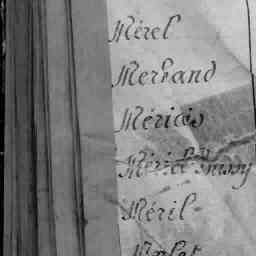 Mérel
Merband
Méricis
Méricl Bussy
Méril